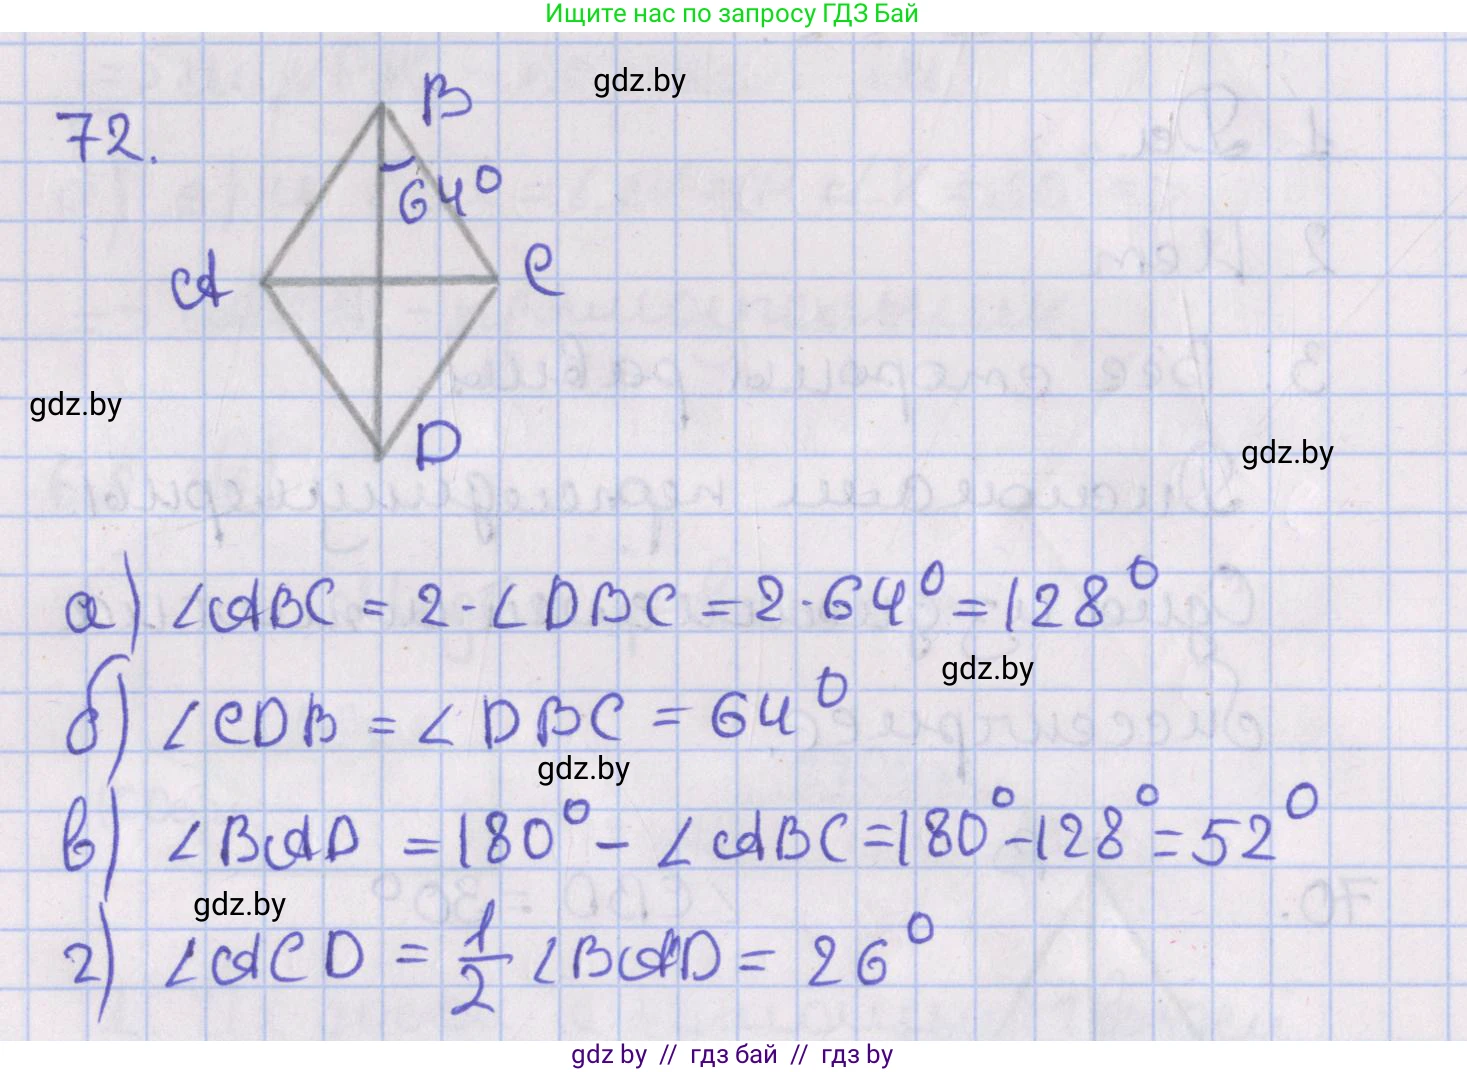 Ищите нас по запросу ГДЗ Бай
gdz.by
72.
B
64°
A
C
gdz.by
D
gdz.by
а) ∠ABC = 2·∠DBC = 2·64° = 128°
gdz.by
б) ∠CDB = ∠DBC = 64°
gdz.by
в) ∠BAD = 180° - ∠ABC = 180° - 128° = 52°
gdz.by
г) ∠ACD = 1/2 ∠BAD = 26°
gdz by // гдз бай // гдз by